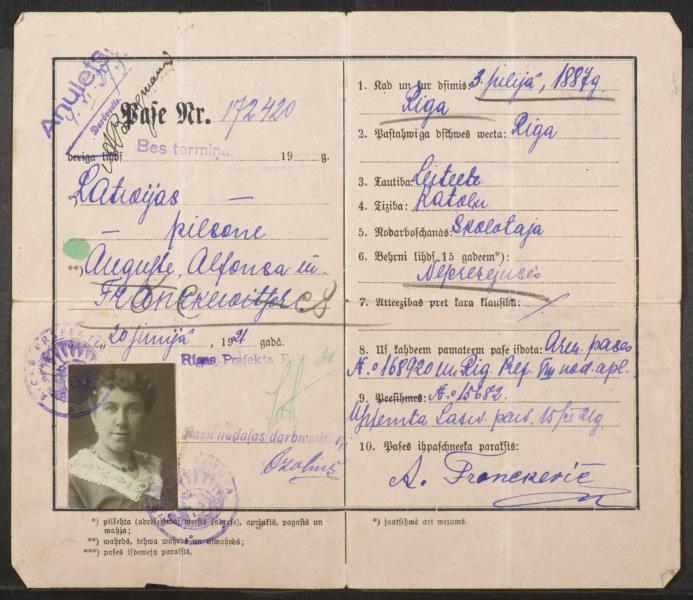 Anulēts
Pase Nr. 172420
Bes termiņa
derīga līhds 19 g.
*) Latvijas —
— pilsone
**) Auguste, Alfonsa m.
Franckevitsch
"20 junijā, 1921. gadā.
Rīgas Prefekta
Pasu nodaļas darbwedis
Ozoliņš
*) pilsehta (adrese), wai meests (adrese), aprinķis, pagasts un
mahja;
**) wahrds, tehwa wahrds un uswahrds;
***) pases isdeweja paraksts.
1. Kad un kur dsimis: 3. julijā, 1887 g.
Riga
2. Pastahwiga dsihwes weeta: Riga
3. Tautiba: Leiteete
4. Tiziba: Katoļu
5. Nodarboschanās: Skolotaja
6. Behrni lihds 15 gadeem*):
Neprezejusēs
7. Atteezibas pret kara klausibu: /
8. Us kahdeem pamateem pase isdota: pases
No 168920 un Rig. Pref. VIII nod. apl.
9. Peesihmes: No 15682.
10. Pases ihpaschneeka paraksts:
A. Franckevič
*) jaatsihmē ari wezums.